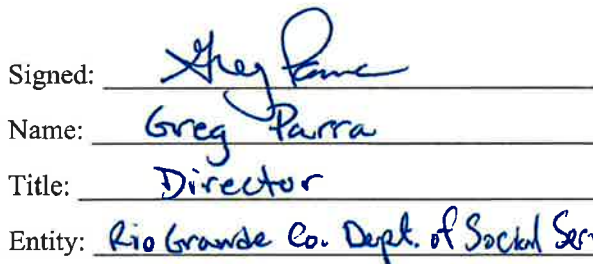 Signed: Greg Parra
Name: Greg Parra
Title: Director
Entity: Rio Grande Co. Dept. of Social Ser